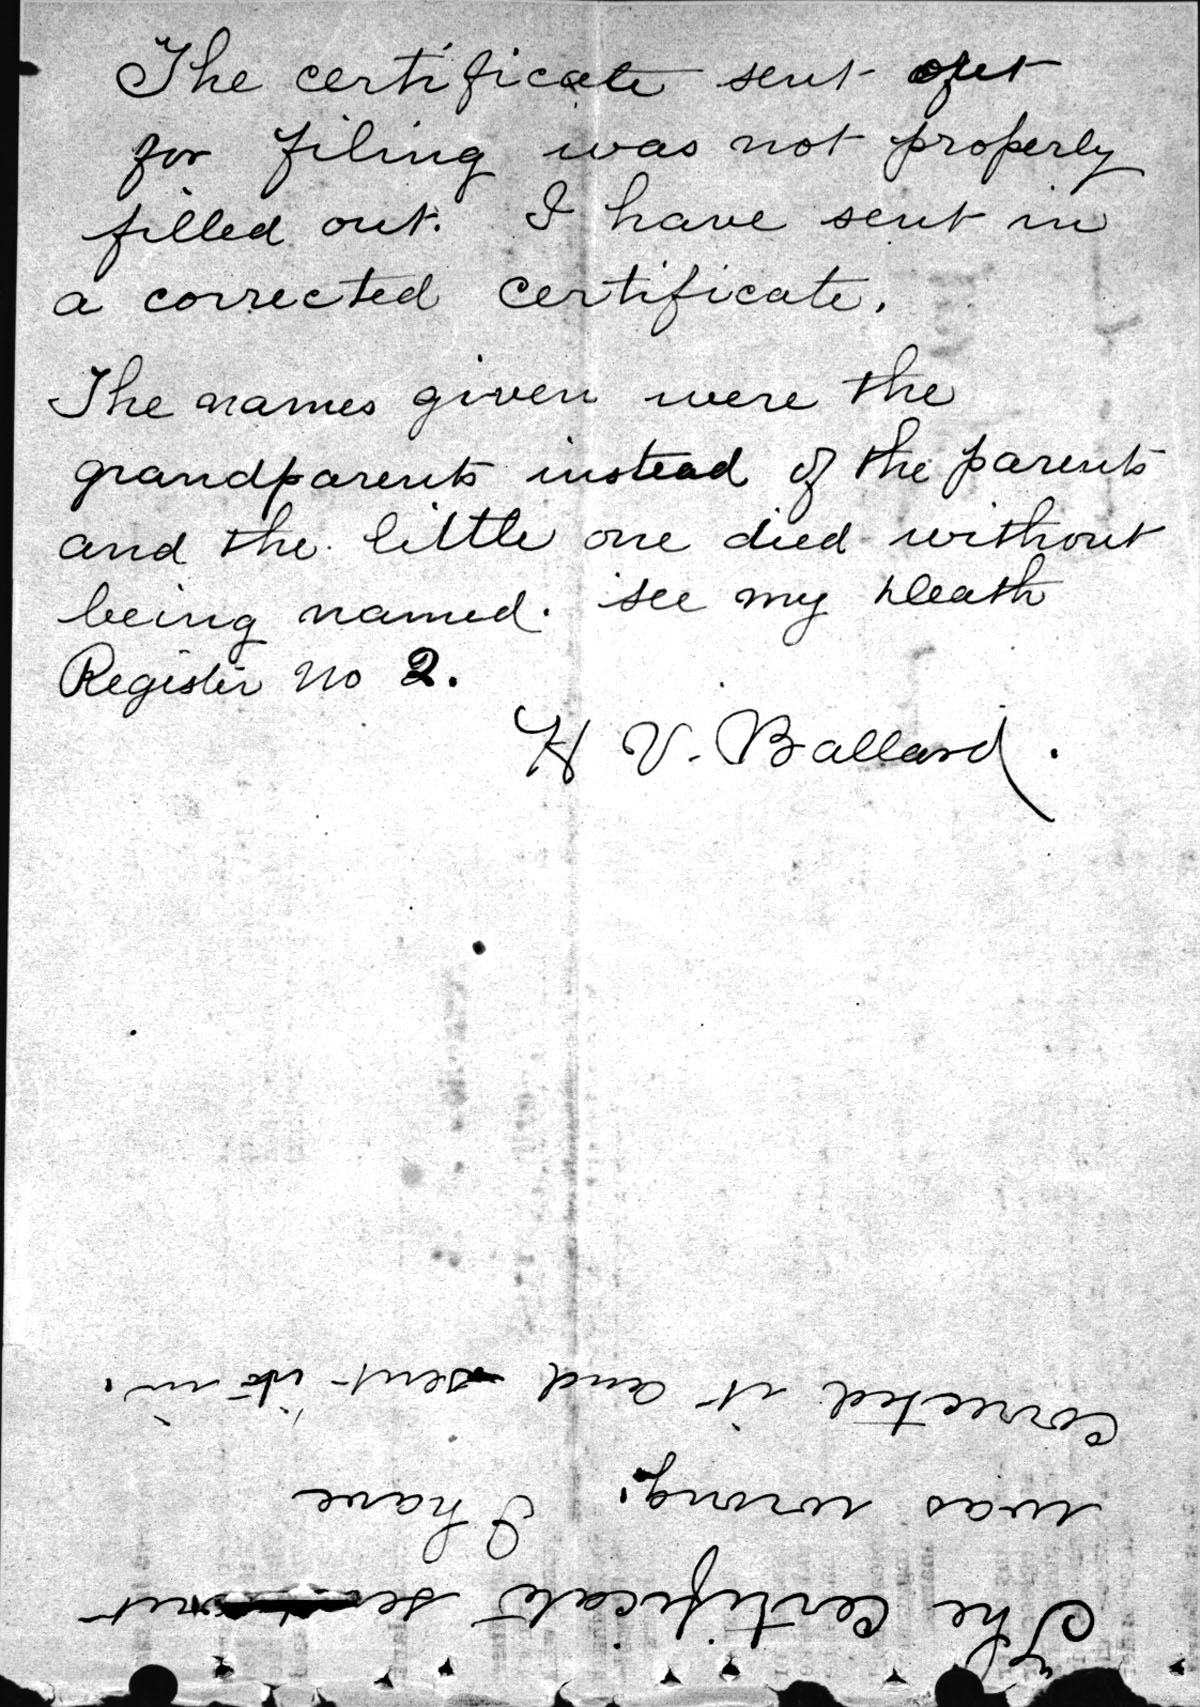 The certificate sent out
for filing was not properly
filled out. I have sent in
a corrected certificate.
The names given were the
grandparents instead of the parents
and the little one died without
being named. see my Death
Register no 2.
H V. Ballard.
The Certificate sent
was wrong. I have
corrected it and sent it in.